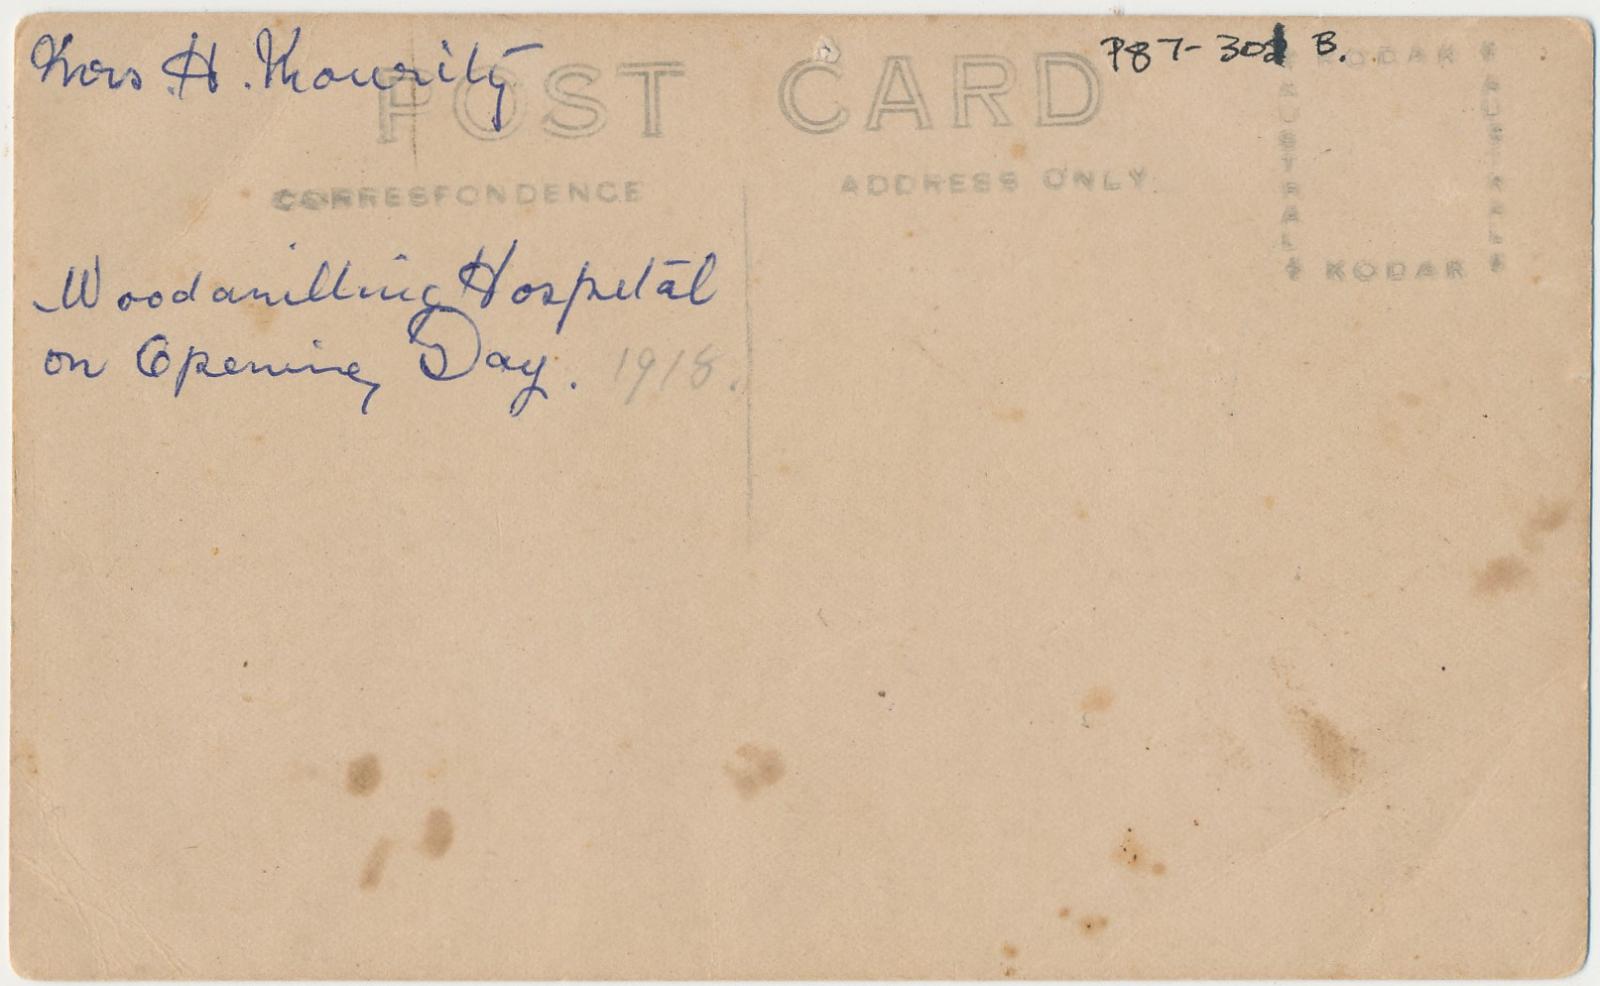 Mrs H. Mouritz
P87-301 B.
POST CARD
CORRESPONDENCE
ADDRESS ONLY
KODAK
AUSTRAL
AUSTRAL
KODAK
Woodanilling Hospital
on Opening Day. 1918.